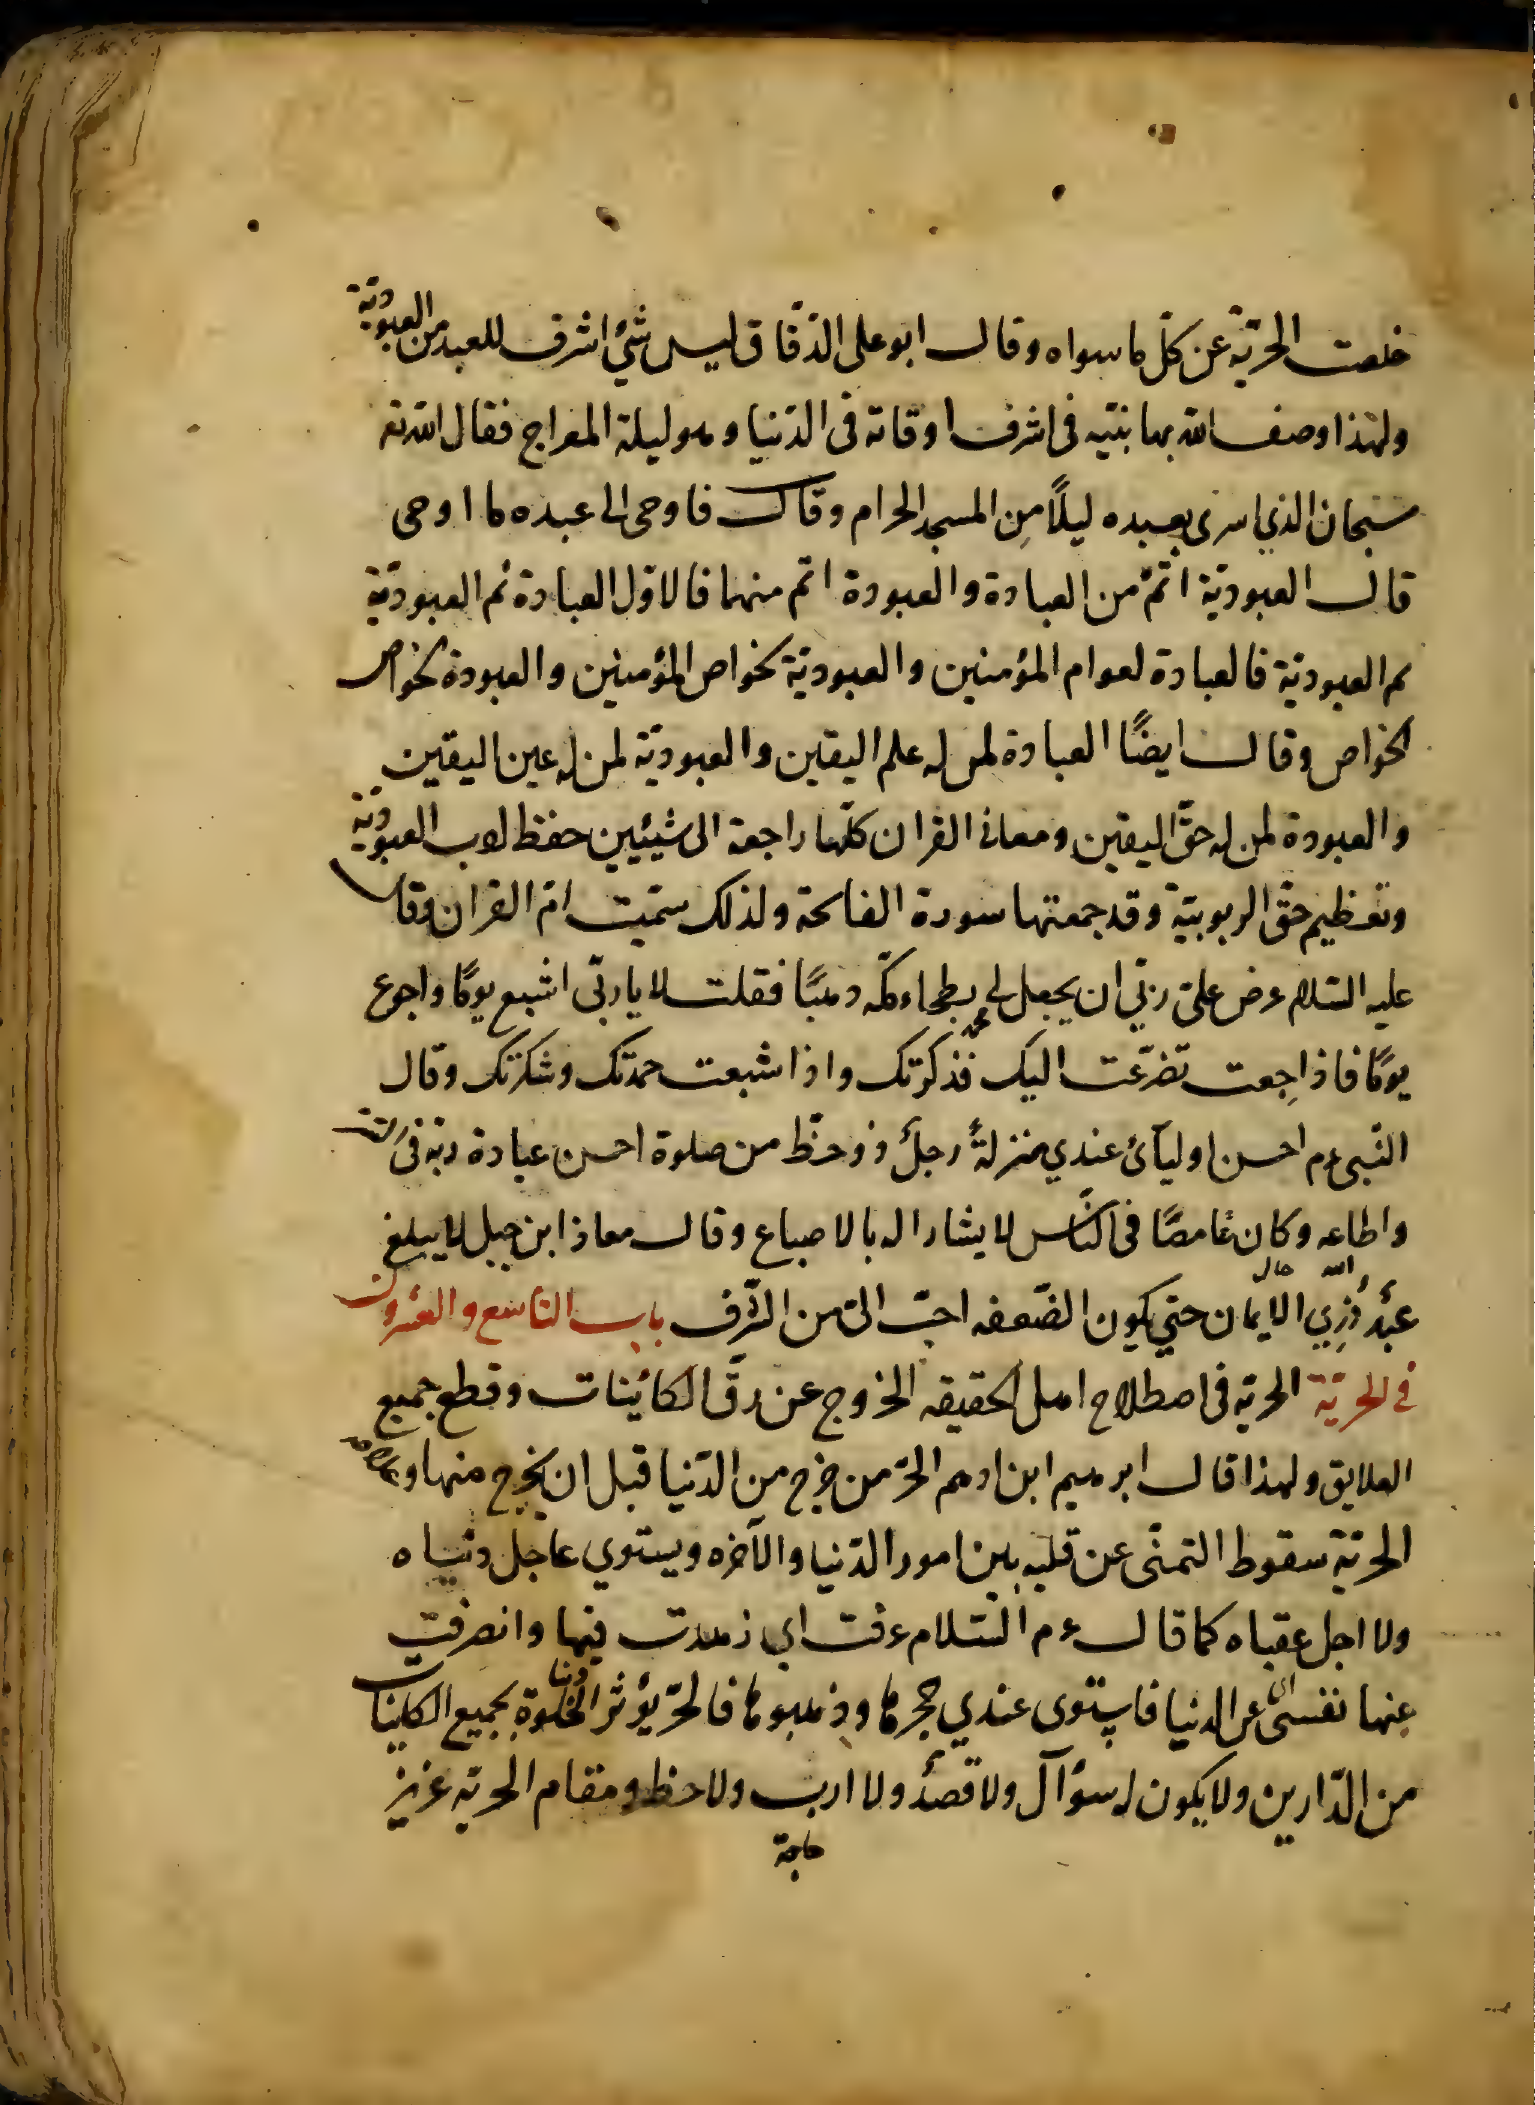 خلصت الحريّة عن كلّ ما سواه وقال ابو على الدّقاق ليس شئ اشرف للعبد من العبوديّة
ولهذا وصف الله بها نبيّه فى اشرف اوقاته فى الدّنيا وهو ليلة المعراج فقال الله تع
سبحان الذي اسرى بعبده ليلًا مِن المسجد الحرام وقال فاوحى الى عبده ما اوحى
قال العبوديّة اتمّ من العبادة والعبودة اتم منهما فالاوّل العبادة ثم العبوديّة
ثم العبوديّة فالعبادة لعوام المؤمنين والعبوديّة لخواص المؤمنين والعبودة لخواص
الخواص وقال ايضًا العبادة لمن له علم اليقين والعبوديّة لمن له عين اليقين
والعبودة لمن له حقّ اليقين ومعانى القران كلّها راجعة الى شيئين حفظ اداب العبوديّة
وتعظيم حقّ الربوبيّة وقد جمعتها سورة الفاتحة ولذلك سمّيت امّ القران وقال
عليه السّلام عرض علىّ ربّي ان يجعل لى بطحاء مكّة ذهبًا فقلت لا يا ربّى اشبع يومًا واجوع
يومًا فاذا جِعت تضرّعت اليك فذكرتك واذا شبعت حمدتك وشكرتك وقال
النّبى عم احسن اوليآئ عندي منزلةً رجلٌ ذو حظّ من صلوة احسن عبادة ربّه فى السّر
واطاعه وكان غامضًا فى النّاس لا يشار اله بالاصباع وقال معاذ ابن جبل لا يبلغ
عبدٌ ذِري الايمان حتي يكون الضّعفه احبّ اليّ من الشّرف باب التاسع والعشرون
فى الحريّة الحريّة فى اصطلاح اهل الحقيقه الخروج عن رقّ الكائينات وقطع جميع
العلايق ولهذا قال ابرهيم ابن ادهم الحرّ من خرج من الدّنيا قبل ان يخرج منها و
الحريّة سقوط التمنّى عن قلبه بين امور الدّنيا والآخره ويستوي عاجل دنياه
ولا اجل عقباه كما قال عم السّلام عرفت اى زهدت فيها وانصرفت
عنها نفسى عن الدنيا فاستوى عندي حجرها وذهبوها فالحرّ يؤثر الخلوة بجميع الكاينات
من الدّارين ولا يكون له سؤآل ولا قصدٌ ولا ارب ولا حظ ومقام الحريّه عزيز
حاجة